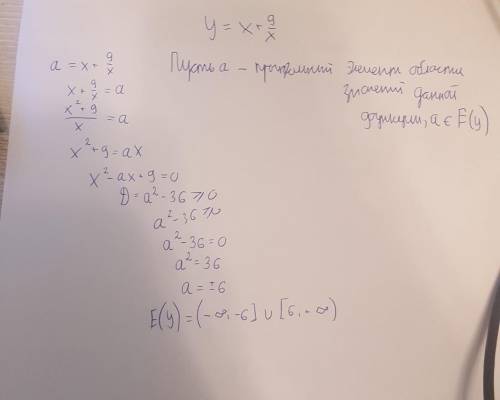 y = x + 9/x
a = x + 9/x
Пусть a – произвольный элемент области
значений данной
функции, a ∈ E(y)
x + 9/x = a
(x² + 9)/x = a
x² + 9 = ax
x² - ax + 9 = 0
D = a² - 36 ≥ 0
a² - 36 ≥ 0
a² - 36 = 0
a² = 36
a = ±6
E(y) = (-∞; -6] ∪ [6; -∞)